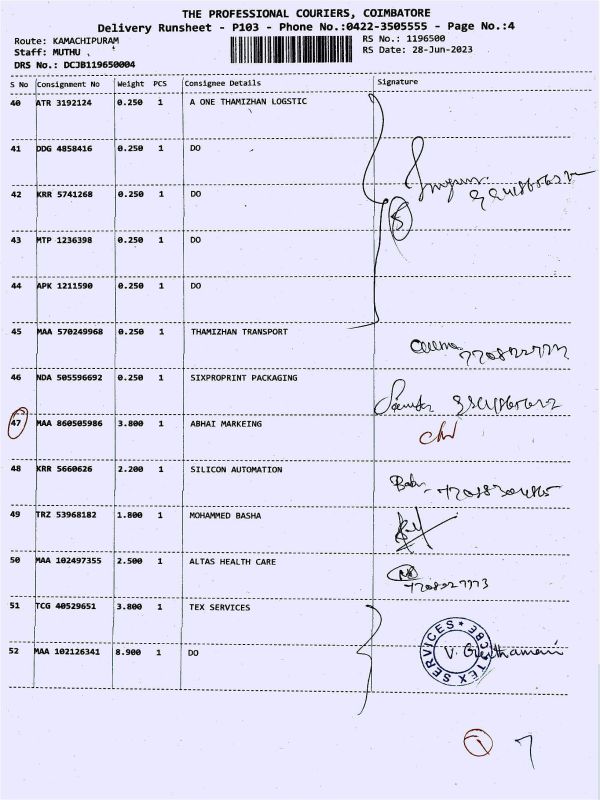 THE PROFESSIONAL COURIERS, COIMBATORE
Delivery Runsheet - P103 - Phone No.:0422-3505555 - Page No.:4
Route: KAMACHIPURAM RS No.: 1196500
Staff: MUTHU RS Date: 28-Jun-2023
DRS No.: DCJB119650004
S No Consignment No Weight PCS Consignee Details Signature
40 ATR 3192124 0.250 1 A ONE THAMIZHAN LOGSTIC
41 DDG 4858416 0.250 1 DO
42 KRR 5741268 0.250 1 DO
5
43 MTP 1236398 0.250 1 DO
44 APK 1211590 0.250 1 DO
45 MAA 570249968 0.250 1 THAMIZHAN TRANSPORT
46 NDA 505596692 0.250 1 SIXPROPRINT PACKAGING
47 MAA 860505986 3.800 1 ABHAI MARKEING
48 KRR 5660626 2.200 1 SILICON AUTOMATION
49 TRZ 53968182 1.800 1 MOHAMMED BASHA
50 MAA 102497355 2.500 1 ALTAS HEALTH CARE
51 TCG 40529651 3.800 1 TEX SERVICES
52 MAA 102126341 8.900 1 DO
TEX SERVICES CBE
1 7